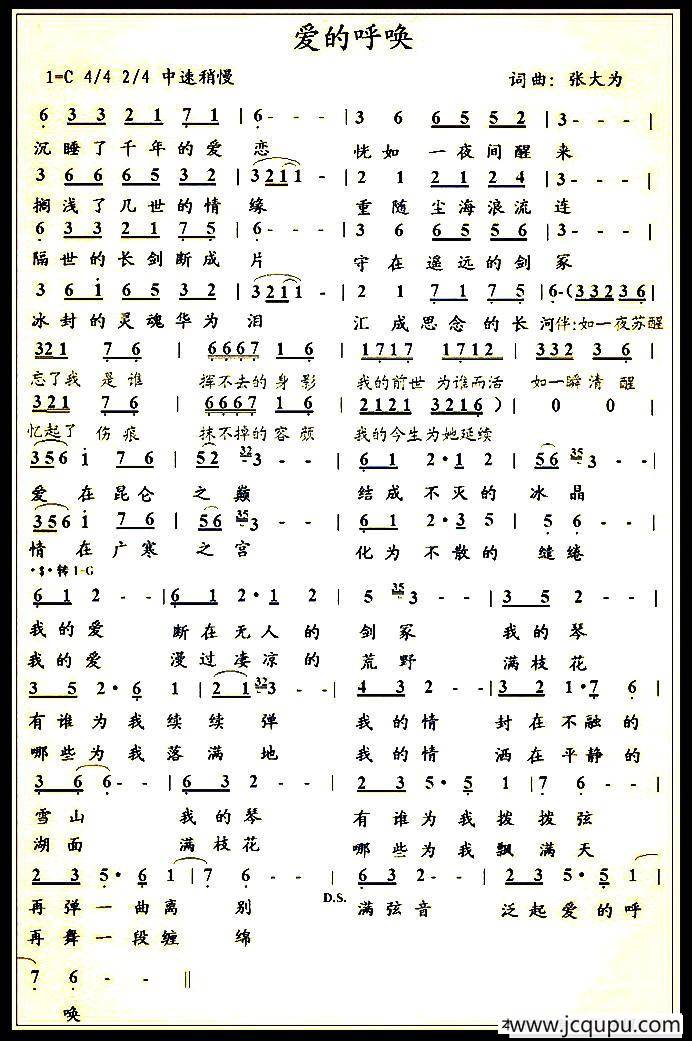 爱的呼唤
1=C 4/4 2/4 中速稍慢 词曲：张大为
6 3 3 2 1 7 1 | 6 - - - | 3 6 6 5 5 2 | 3 - - - |
沉睡了千年的爱恋 恍如一夜间醒来
3 6 6 6 5 3 2 | 3 2 1 1 - | 2 1 2 1 2 4 | 3 - - - |
搁浅了几世的情缘 重随尘海浪流连
6 3 3 2 1 7 5 | 6 - - - | 3 6 6 5 5 6 | 3 - - - |
隔世的长剑断成片 守在遥远的剑冢
3 6 i 6 5 3 2 | 3 2 1 1 - | 2 1 7 1 7 5 | 6 - (3 3 2 3 6 |
冰封的灵魂华为泪 汇成思念的长河伴:如一夜苏醒
3 2 1 7 6 | 6 6 6 7 1 6 | 1 7 1 7 1 7 1 2 | 3 3 2 3 6 |
忘了我是谁 挥不去的身影 我的前世为谁而活 如一瞬清醒
3 2 1 7 6 | 6 6 6 7 1 6 | 2 1 2 1 3 2 1 6 ) | 0 0 |
忆起了伤痕 抹不掉的容颜 我的今生为她延续
3 5 6 i 7 6 | 5 2 32 3 - - | 6 1 2 · 1 2 | 5 6 35 3 - - |
爱在昆仑之巅 结成不灭的冰晶
3 5 6 i 7 6 | 5 6 35 3 - - | 6 1 2 · 3 5 | 5 6 - - |
情在广寒之宫 化为不散的缱绻
·$·转1=G
6 1 2 - - | 6 1 2 · 1 2 | 5 35 3 - - | 3 5 2 - - |
我的爱 断在无人的剑冢 我的琴
我的爱 漫过凄凉的荒野 满枝花
3 5 2 · 6 1 | 2 1 32 3 - - | 4 3 2 - - | 3 2 1 · 7 6 |
有谁为我续续弹 我的情 封在不融的
哪些为我落满地 我的情 洒在平静的
3 6 6 - - | 6 3 2 - - | 2 3 5 · 5 1 | 7 6 - - |
雪山 我的琴 有谁为我拨拨弦
湖面 满枝花 哪些为我飘满天
2 3 5 · 6 1 | 7 6 - - | 6 3 2 - - | 2 3 5 · 5 1 |
D.S.
再弹一曲离别 满弦音 泛起爱的呼
再舞一段缠绵
7 6 - - ‖
唤
www.jcqupu.com